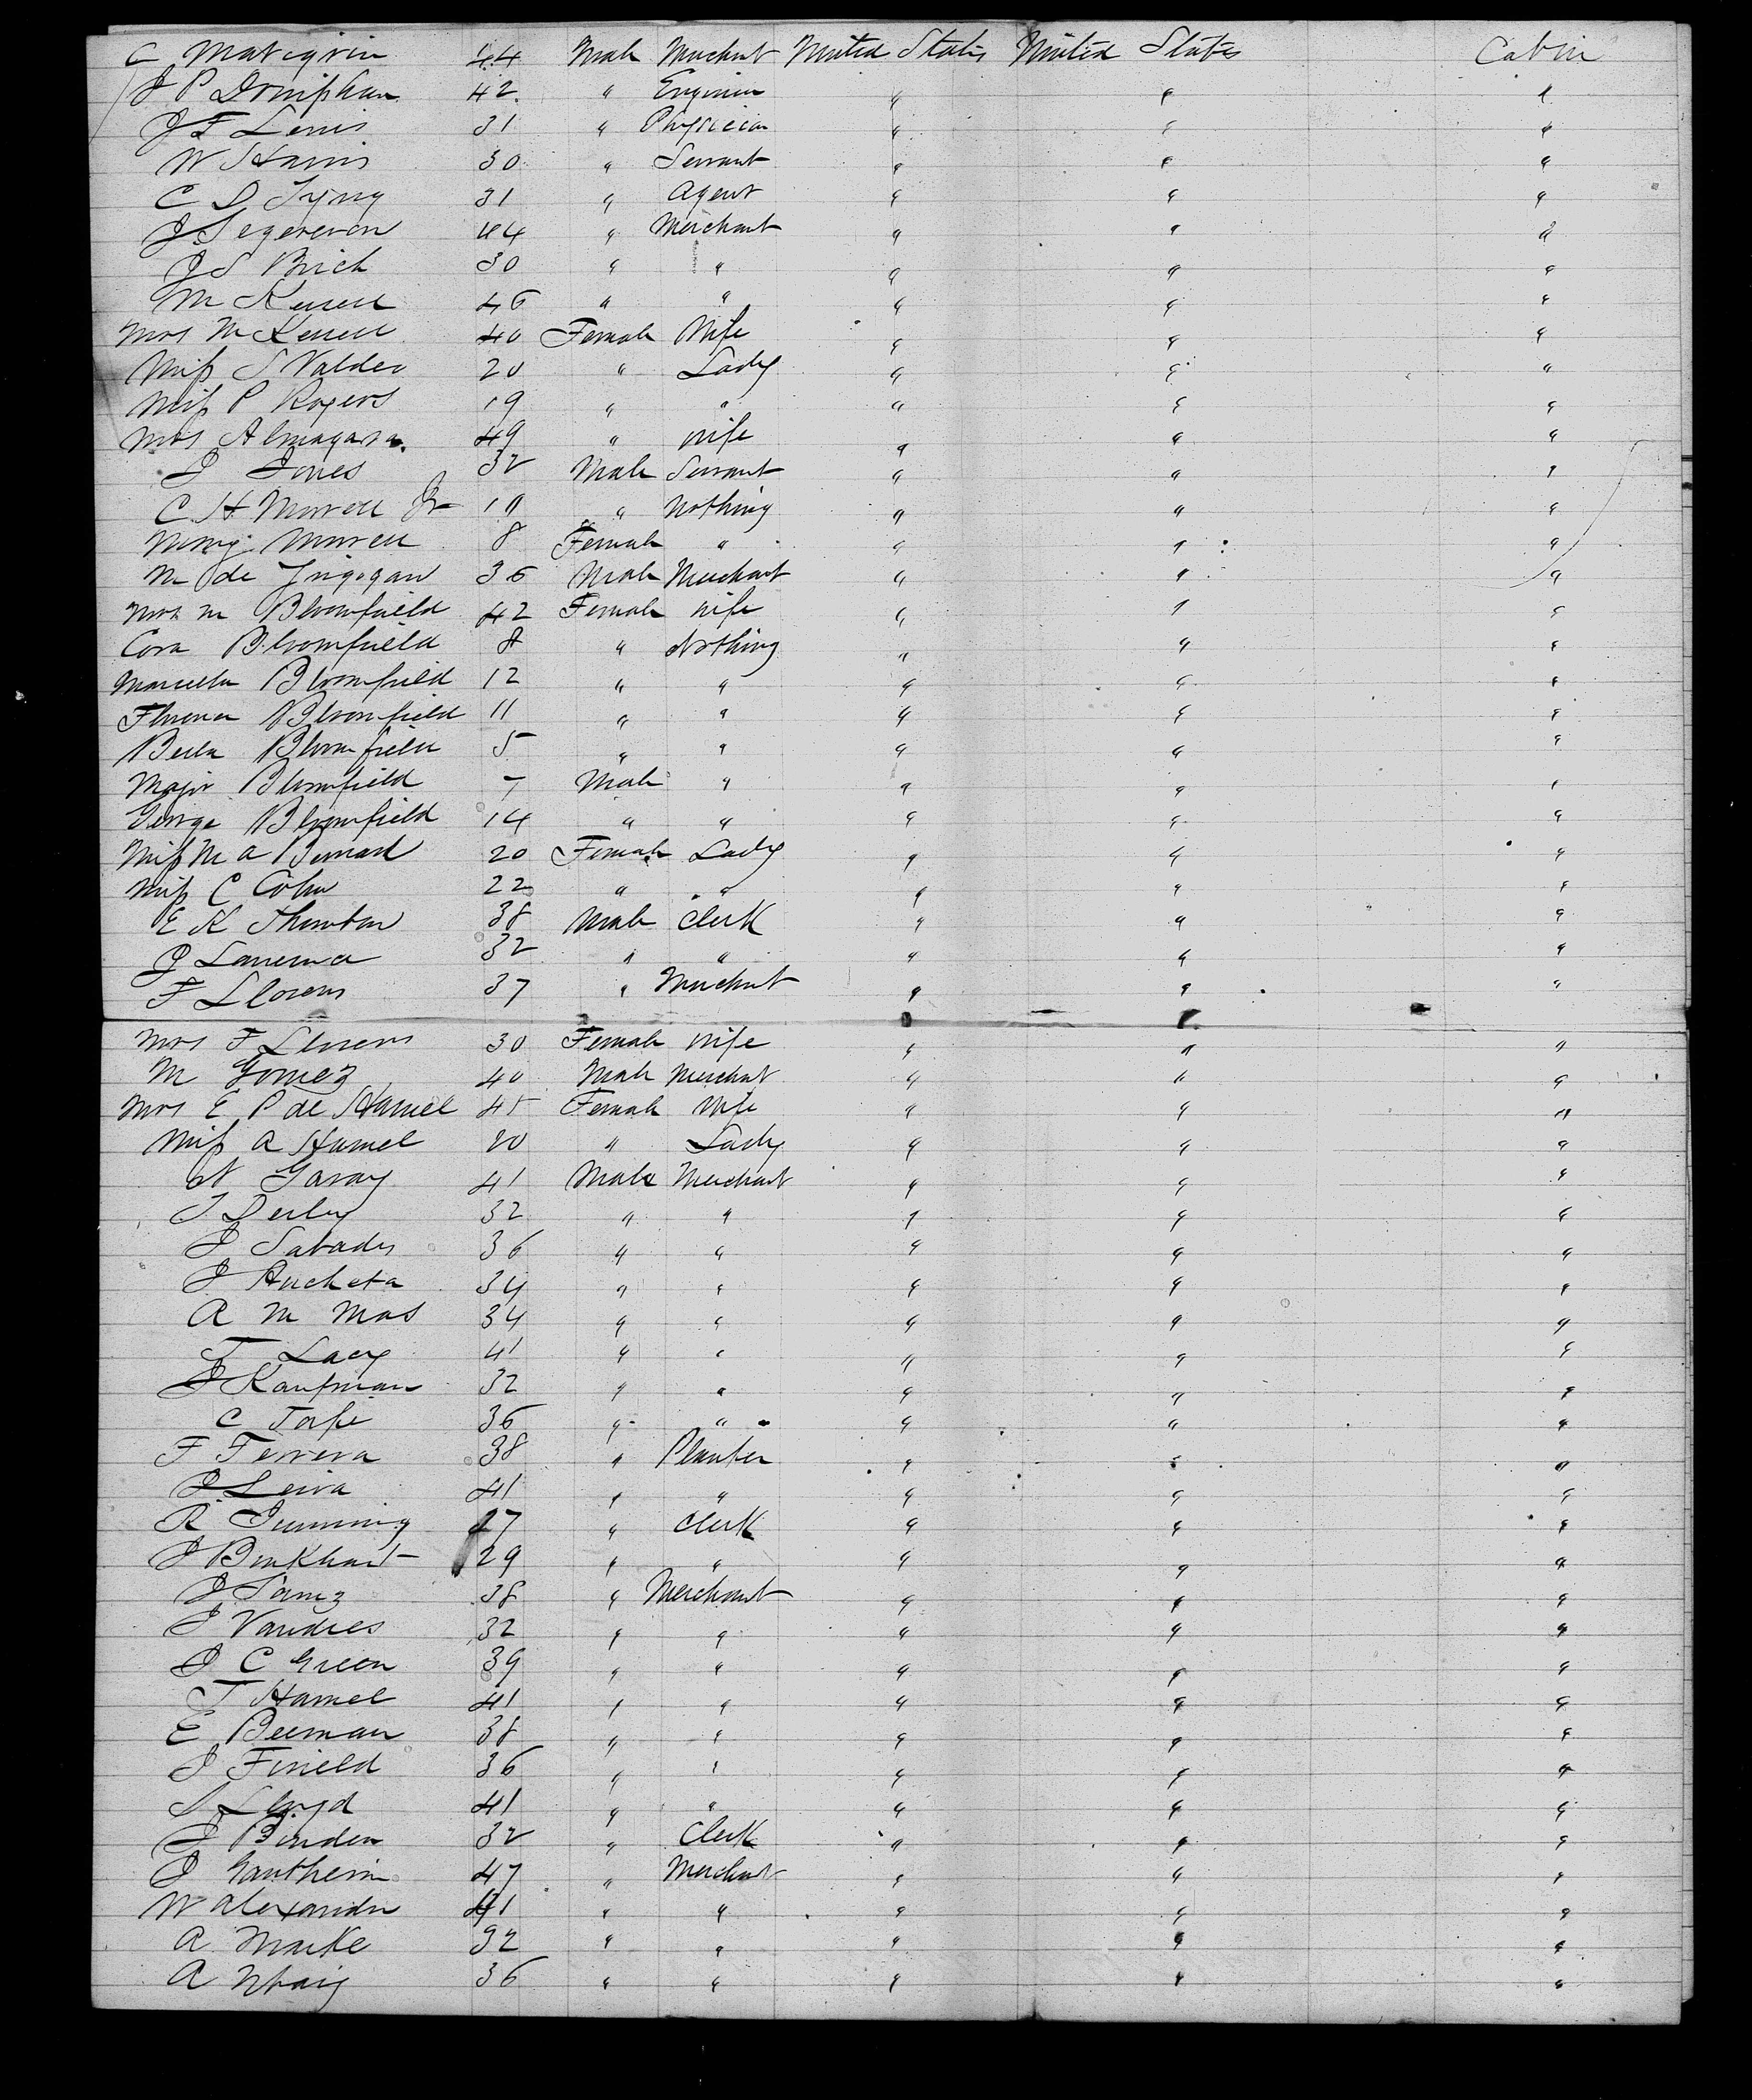 C 44 Male Merchant United States United States Cabin
J P Doniphan 42 " Engineer " " "
J F Lewis 31 " Physician " " "
W Harris 30 " Servant " " "
C D Tyng 31 " Agent " " "
J 44 " Merchant " " "
J S Brich 30 " " " " "
M 46 " " " " "
Mrs M 40 Female Wife " " "
Miss S Valdes 20 " Lady " " "
Miss P Rogers 19 " " " " "
Mrs Almagara 49 " Wife " " "
J Jones 32 Male Servant " " "
C H Morrell Jr " Nothing " " "
Morrell 8 Female " " " "
M de 36 Male Merchant " " "
Mrs M Bloomfield 42 Female Wife " " "
Cora Bloomfield 8 " Nothing " " "
Marcella Bloomfield 12 " " " " "
Florence Bloomfield 11 " " " " "
Bella Bloomfield 5 " " " " "
Major Bloomfield 7 Male " " " "
George Bloomfield 14 " " " " "
Miss M A Bernard 20 Female Lady " " "
Miss C Cohn 22 " " " " "
E K Thornton 38 Male Clerk " " "
J 32 " " " " "
F Llorens 37 " Merchant " " "
Mrs F Llorens 30 Female Wife " " "
M Gomez 40 Male Merchant " " "
Mrs E P de Hamel 45 Female Wife " " "
Miss A Hamel 20 " Lady " " "
N Garay 41 Male Merchant " " "
T Derby 32 " " " " "
J Sabades 36 " " " " "
J Ancheta 34 " " " " "
A M Mas 34 " " " " "
T Lacy 41 " " " " "
J Kaufman 32 " " " " "
C 36 " " " " "
F Ferrera 38 " Planter " " "
J Leiva 41 " " " " "
R Jenning 27 " Clerk " " "
J Burkhart 29 " " " " "
J Sanz 38 " Merchant " " "
J Vandres 32 " " " " "
J C Green 39 " " " " "
T Hamel 41 " " " " "
E Beeman 38 " " " " "
J 36 " " " " "
S Lloyd 41 " " " " "
J 32 " Clerk " " "
J 47 " Merchant " " "
W Alexander 41 " " " " "
A 32 " " " " "
A 36 " " " " "